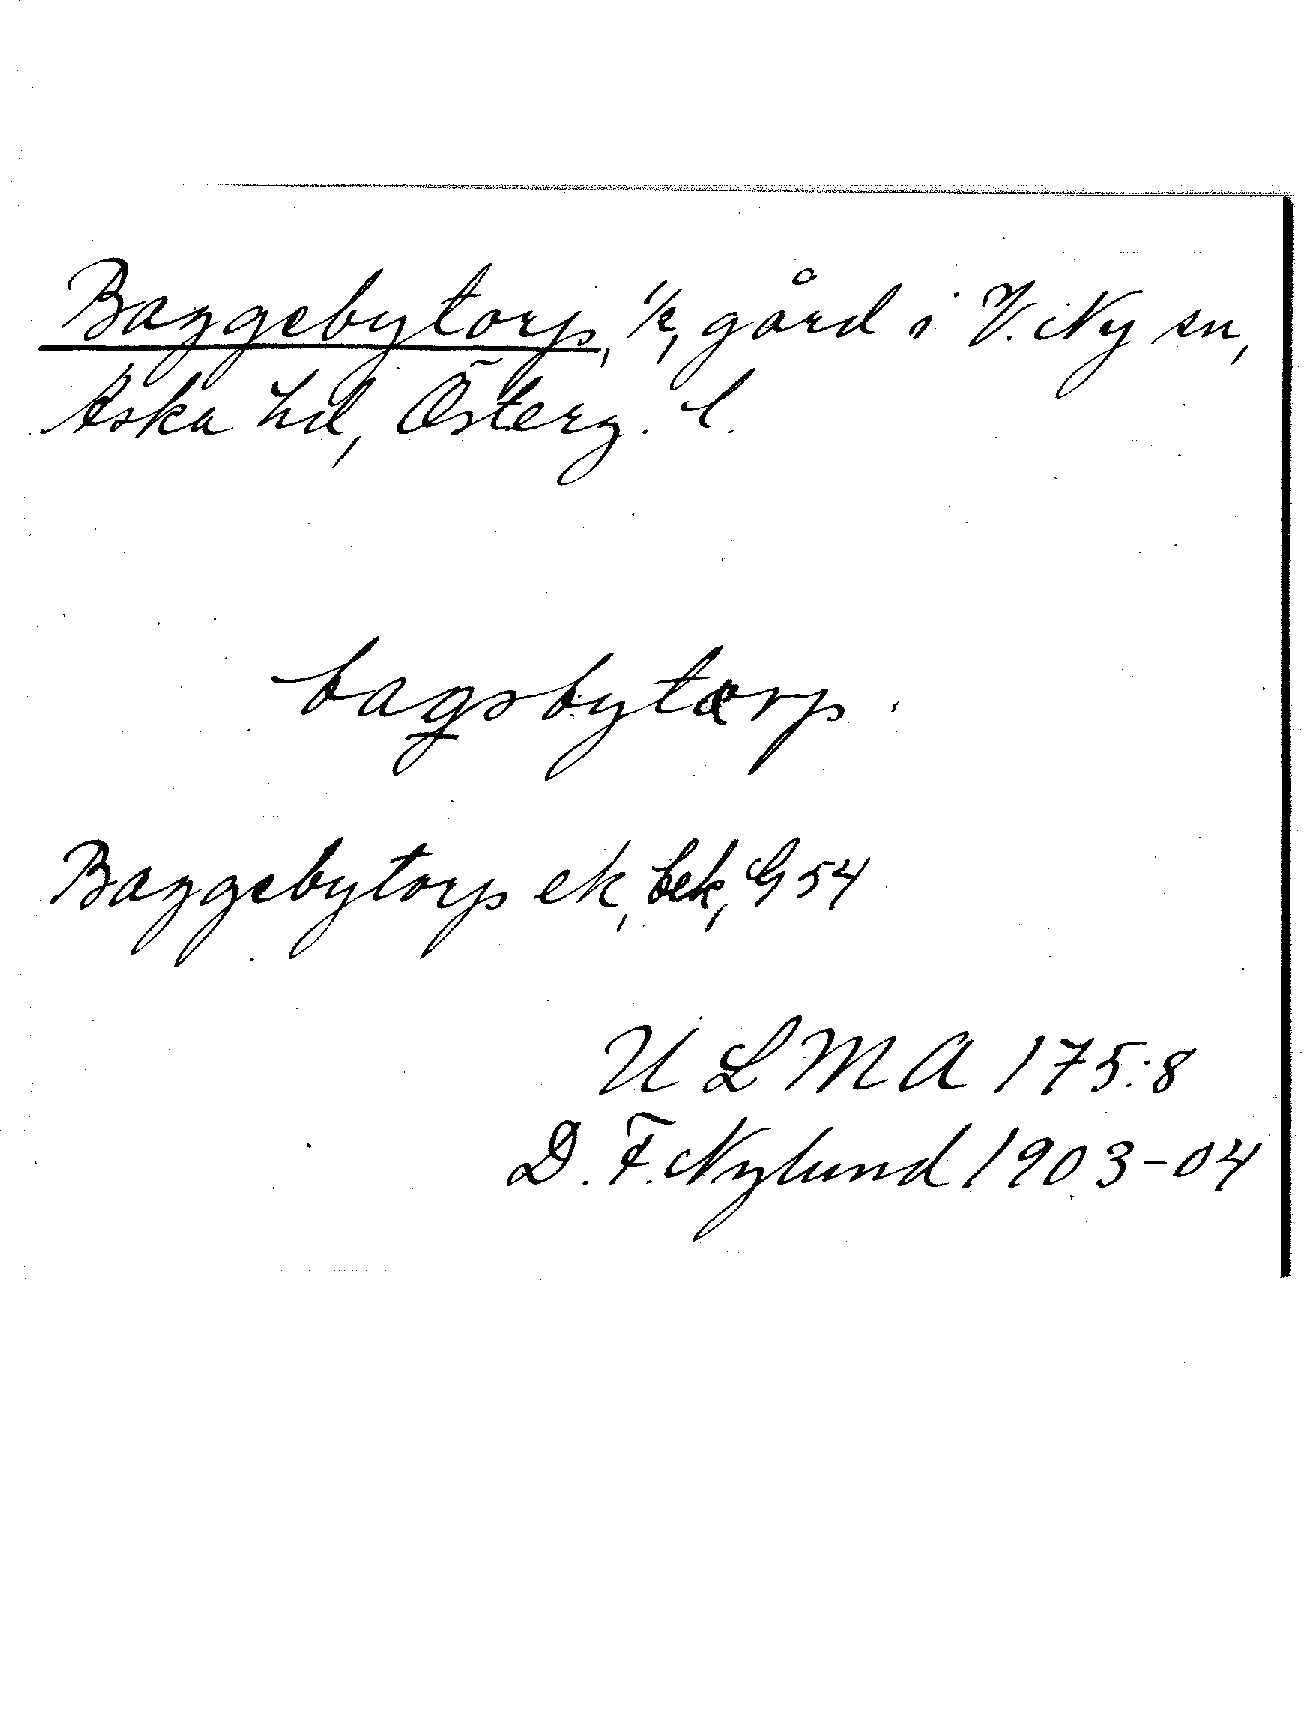 Baggebytorp, 1/2, gård i V. Ny sn,
Aska hd, Österg. l.
bagsbytærp.
Baggebytorp ek, bek, G 54
ULMA 175:8
D. F. Nylund 1903-04